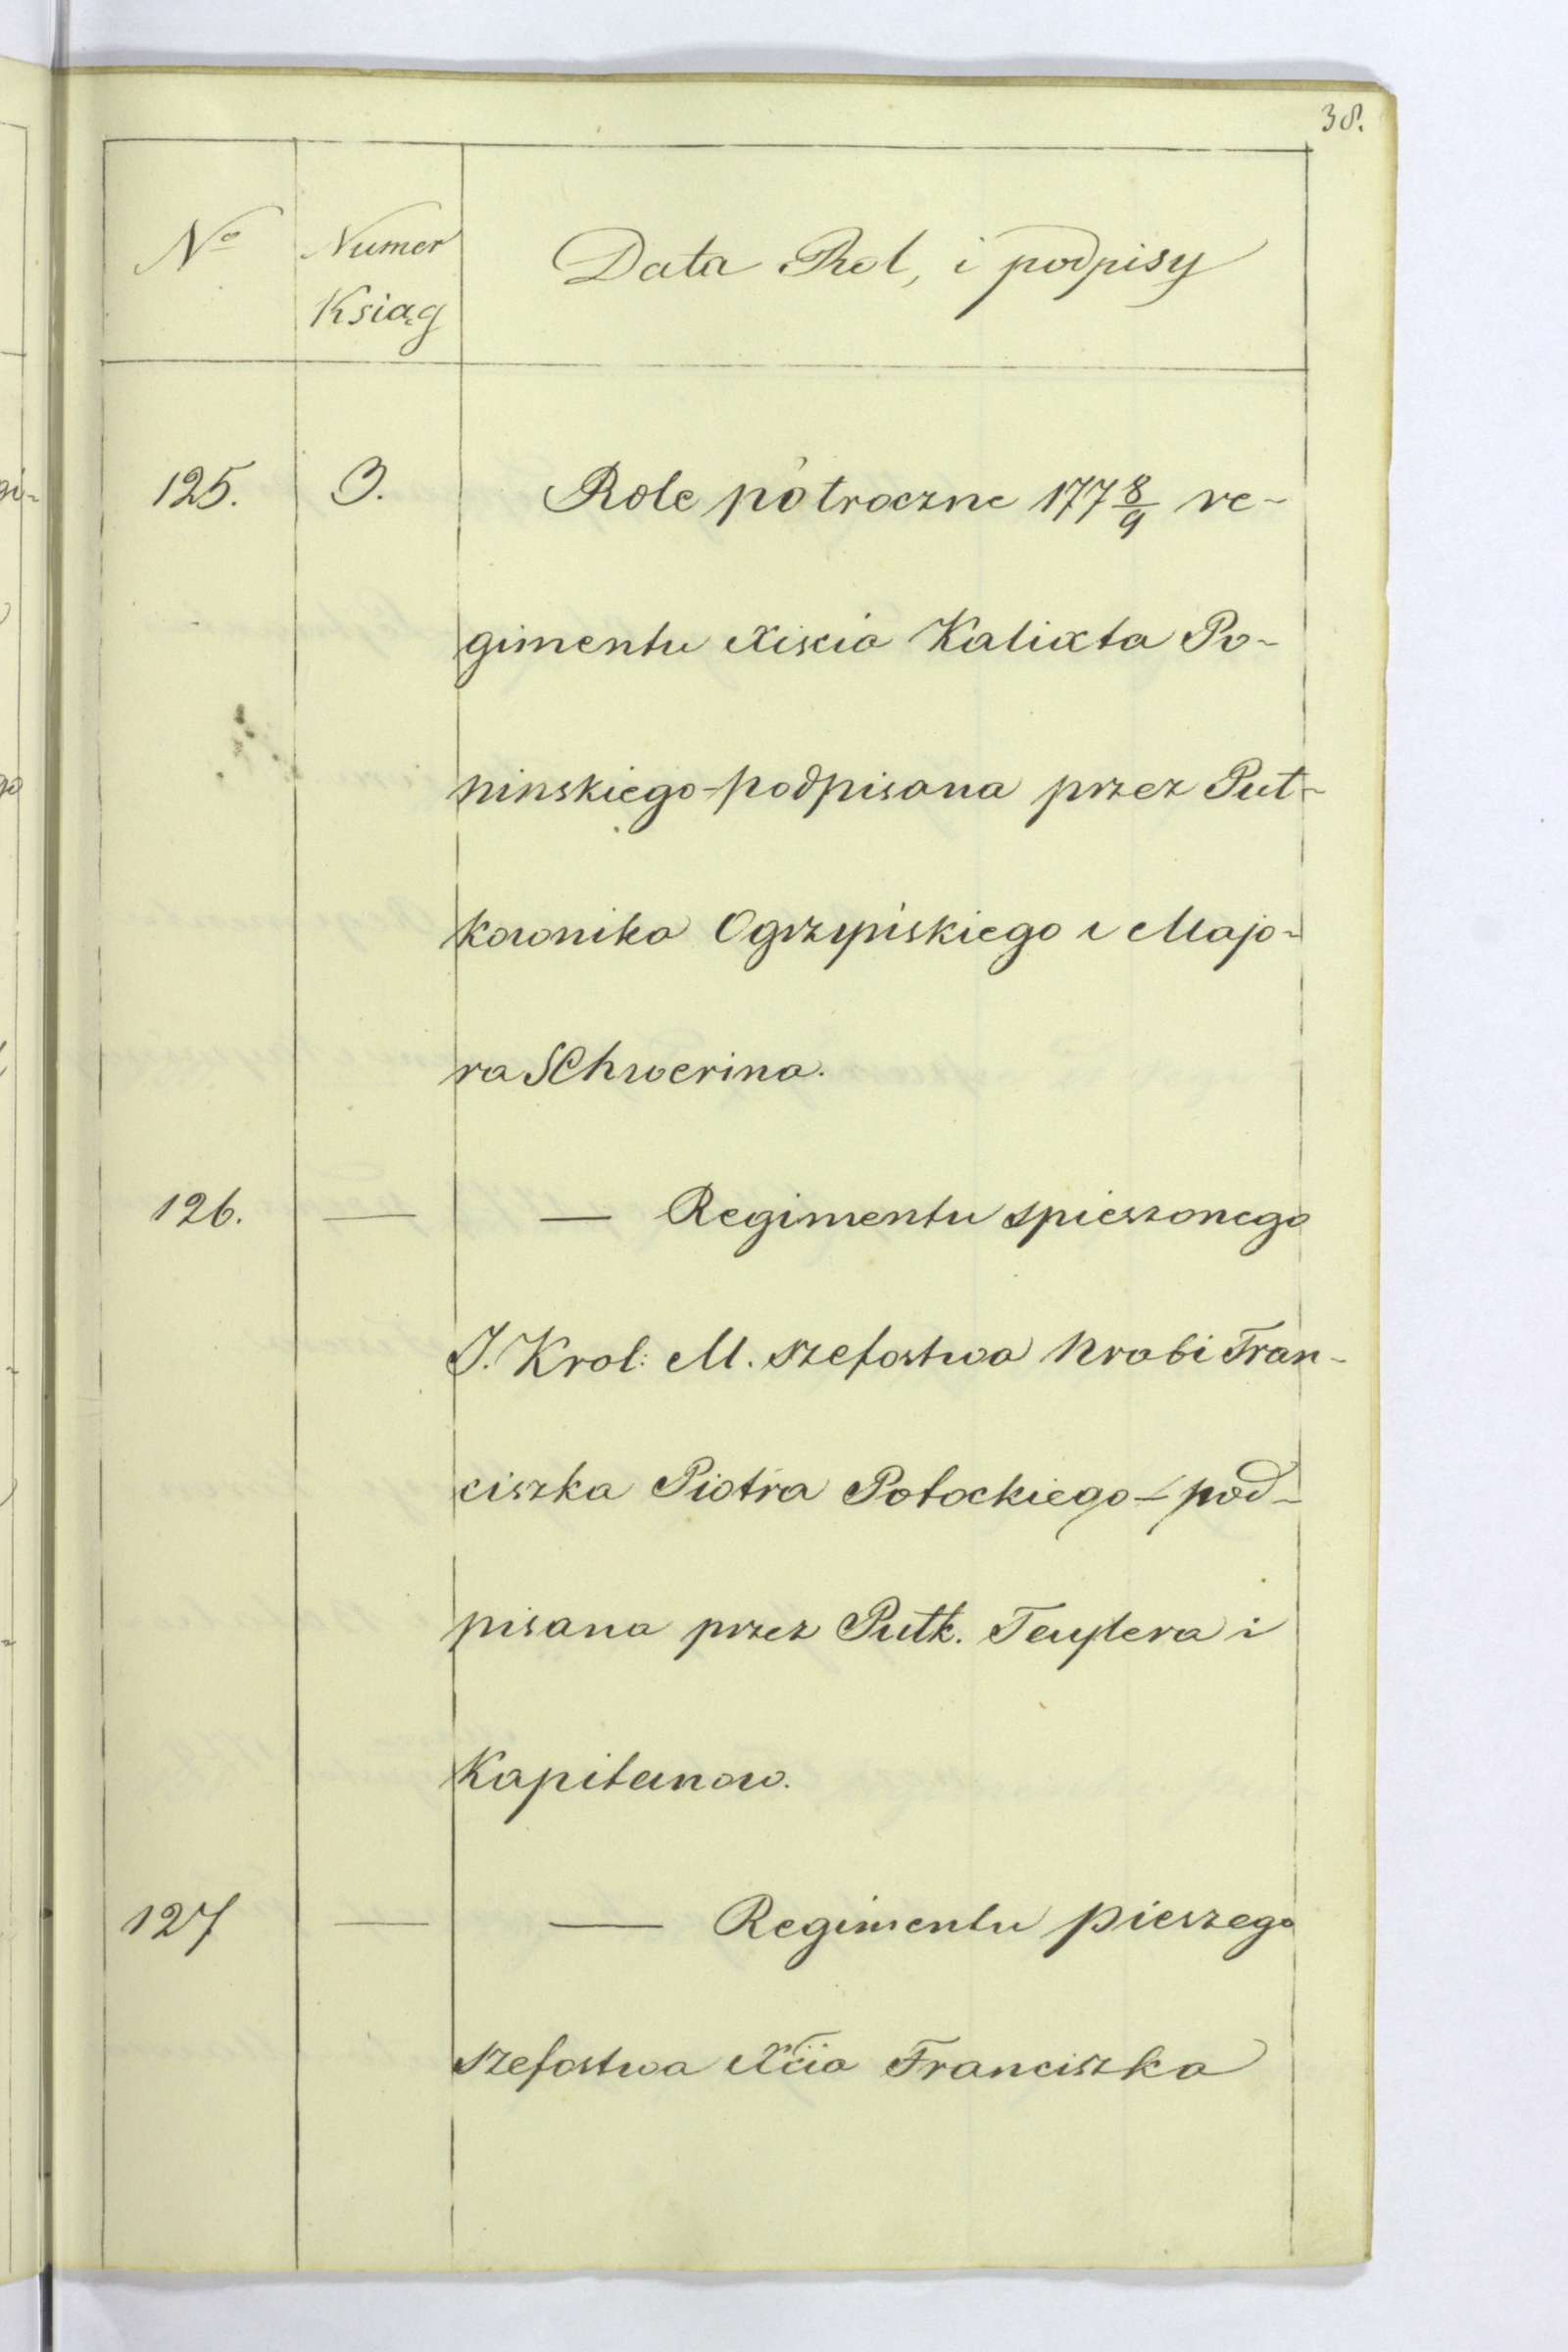 38.
No Numer Data Rol, i podpisy
Ksiąg
125. 3. Role pótroczne 177 8/9 re-
gimentu Xiscia Kalixta Po-
ninskiego - podpisana przez Puł-
kownika Ogrzyńskiego i Majo-
ra Schwerina.
126. — — Regimentu spieszonego
J. Krol: M. szefostwa Hrabi Fran-
ciszka Piotra Potockiego - pod-
pisana przez Pułk. Teuflera i
Kapitanow.
127 — — Regimentu pieszego
szefostwa Xcia Franciszka